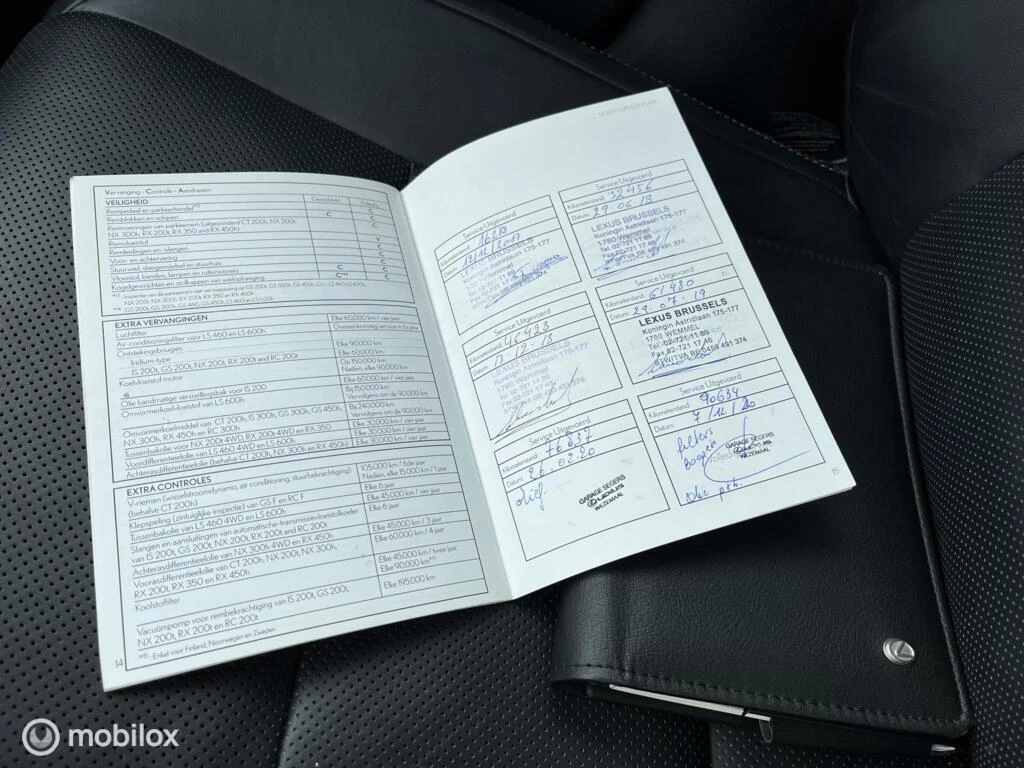 Vervanging - Controle - Aandraaien
VEILIGHEID
Gemiddeld
Volledig
Rempedaal en parkeerhendel*13
C
Remblokken en schijven
C
C
Remvoeringen van parkeerrem (uitgezonderd CT 200h, NX 200t,
NX 300h, RX 200t, RX 350 and RX 450h)
C
Remvloeistof
Remleidingen en -slangen
C
Voor- en achtervering
C
Stuurwiel, stangenstelsel en stuurhuis
C
Vloeistof, banden, lampen en ruitenwissers
C
C
Kogelgewrichten en stofkappen van wielophanging
C*14
C
EXTRA VERVANGINGEN
Luchtfilter
Elke 60.000 km / vier jaar
Air-conditioningsfilter voor LS 460 en LS 600h
Overeenkomstig service-indicator
Ontstekingsbougies
Iridium-type
Elke 90.000 km
IS 200t, GS 200t, NX 200t, RX 200t and RC 200t
Elke 60.000 km
Koelvloeistof motor
Op 150.000 km
Nadien, elke 90.000 km
Olie handmatige versnellingsbak voor IS 200
Elke 60.000 km / vier jaar
Omvormerkoelvloeistof van LS 600h
Bij 150.000 km
Vervolgens om de 90.000 km
Omvormerkoelmiddel van CT 200h, IS 300h, GS 300h, GS 450h,
NX 300h, RX 450h en RC 300h
Bij 240.000 km
Vervolgens om de 90.000 km
Tussenbakolie voor NX 200t 4WD, RX 200t 4WD en RX 350
Elke 30.000 km / vier jaar
Voordifferentieelolie van LS 460 4WD en LS 600h
Elke 30.000 km / vier jaar
Achterasdifferentieelolie (behalve CT 200h, NX 300h en RX 450h)
Elke 30.000 km / vier jaar
EXTRA CONTROLES
V-riemen (wisselstroomdynamo, air conditioning, stuurbekrachtiging)
(behalve CT 200h)
105.000 km / 6de jaar
Nadien, elke 15.000 km / 1 jaar
Klepspeling (zintuiglijke inspectie) van GS F en RC F
Elke 6 jaar
Tussenbakolie van LS 460 4WD en LS 600h
Elke 45.000 km / vier jaar
Slangen en aansluitingen van automatische-transmissievloeistofkoeler
van IS 200t, GS 200t, NX 200t, RX 200t and RC 200t
Elke 6 jaar
Achterasdifferentieelolie van NX 300h 4WD en RX 450h
Elke 45.000 km / 3 jaar
Voorasdifferentieelolie van CT 200h, NX 200t, NX 300h,
RX 200t, RX 350 en RX 450h
Elke 60.000 km / 4 jaar
Koolstoffilter
Elke 45.000 km / twee jaar
Elke 90.000 km*15
Vacuümpomp voor rembekrachtiging van IS 200t, GS 200t,
NX 200t, RX 200t en RC 200t
Elke 195.000 km
*15 : Enkel voor Finland, Noorwegen en Zweden
14
LEXUS SERVICE PLAN
Service Uitgevoerd
Kilometerstand: 16288
Datum: 12/12/2017
LEXUS BRUSSELS
Koningin Astridlaan 175-177
1780 Wemmel
Service Uitgevoerd
Kilometerstand: 32456
Datum: 29.06.18
LEXUS BRUSSELS
Koningin Astridlaan 175-177
1780 Wemmel
Tel. 02-721 11 89
Fax.02-721 17 46
BTW/TVA BE 0459 491 374
Service Uitgevoerd
Kilometerstand: 46428
Datum: 13-12-18
LEXUS BRUSSELS
Koningin Astridlaan 175-177
1780 Wemmel
Tel. 02/721 11 89
Service Uitgevoerd
Kilometerstand: 61480
Datum: 29.07.19
LEXUS BRUSSELS
Koningin Astridlaan 175-177
1780 WEMMEL
Tel: 02-721.11.89
Fax 02-721 17 46
BTW/TVA BE 0459 491 374
Service Uitgevoerd
Kilometerstand: 76637
Datum: 26.02.20
GARAGE SEGERS
WEZEMAAL
Service Uitgevoerd
Kilometerstand: 90634
Datum: 7/12/20
filters
GARAGE SEGERS
WEZEMAAL
15
mobilox